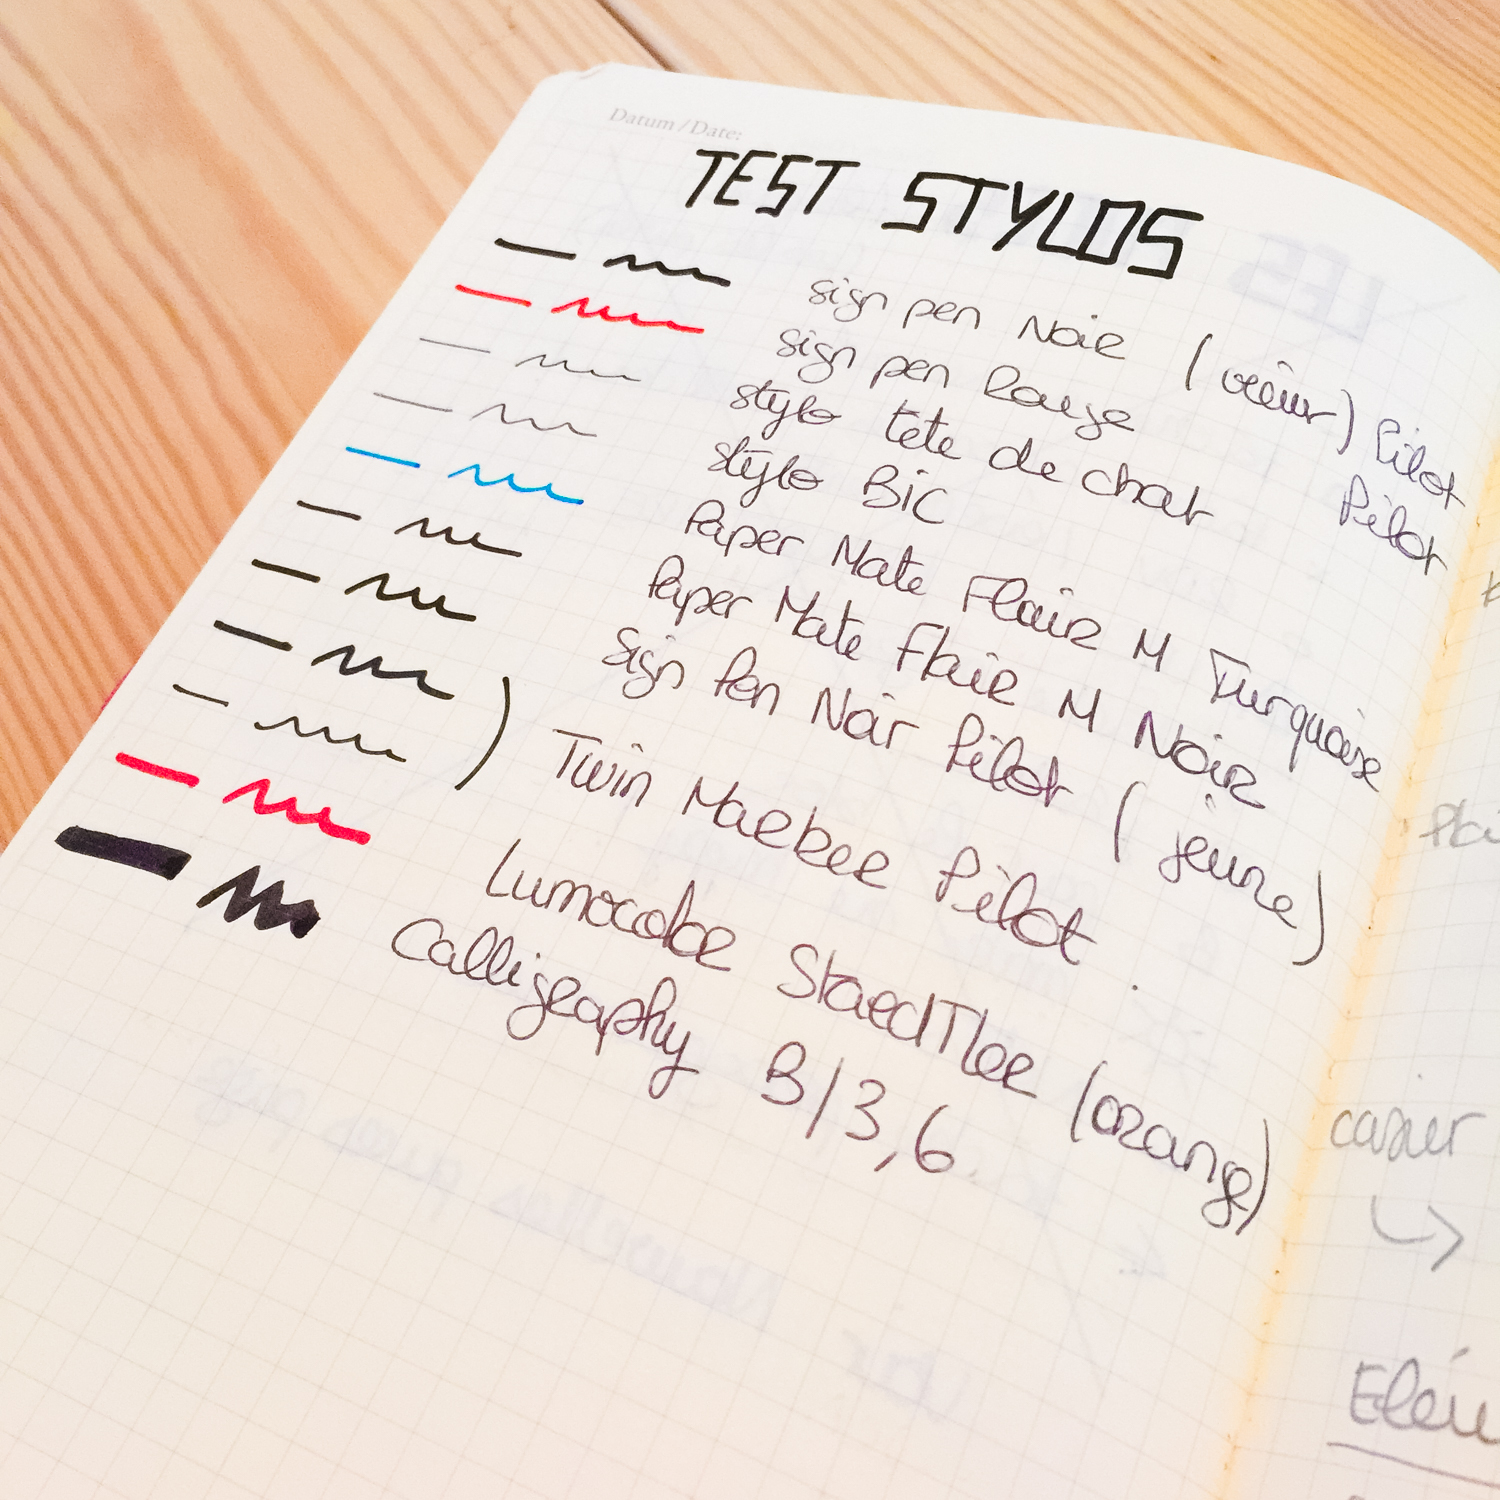 Datum / Date:
TEST STYLOS
sign pen Noir (vieux) Pilot
sign pen Rouge Pilot
stylo tete de chat
stylo BiC
Paper Mate Flair M Turquoise
Paper Mate Flair M Noir
Sign Pen Noir Pilot (jeune)
Twin Marker Pilot
Lumocolor StaedTler (orange)
Calligraphy B/3,6
casier